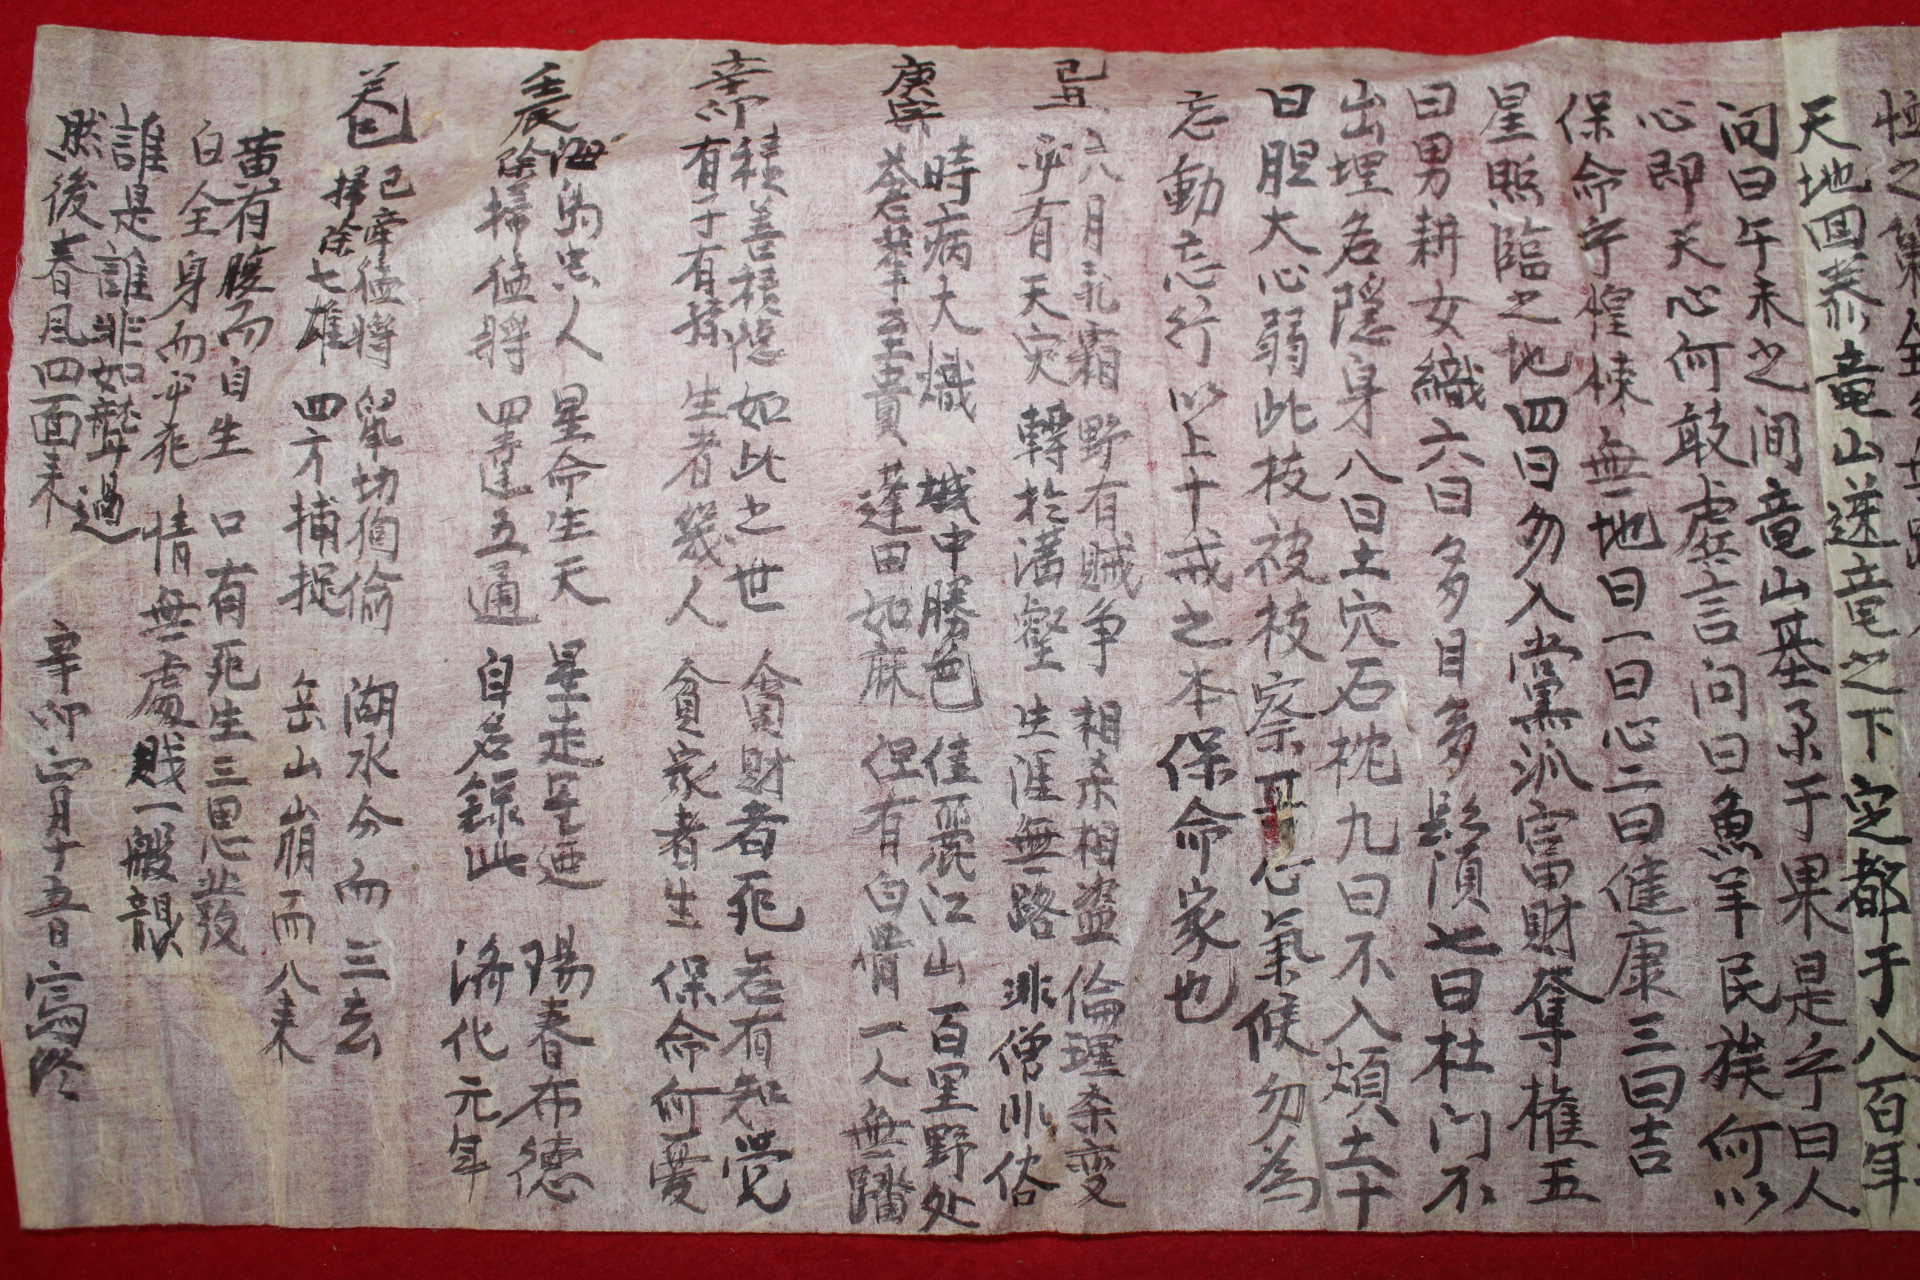 天地回泰竜山逆竜之下定都于八百年
問曰午未之间竜山基于果是乎曰人
心即天心何敢虛言问曰魚羊民族何以
保命乎惶悚無地曰一曰心二曰健康三曰吉
星照臨之地四曰勿入黨派富財奪權五
曰男耕女織六曰多多目多髟須七曰杜门不
出埋名隠身八曰土穴石枕九曰不入煩土十
曰胆大心弱此枝彼枝察其心氣候勿為
忘動忘行以上十戒之本保命家也
己丑 六月飛霜 野有賊争 相杀相盗 倫理杀变
乎有天灾 轉於溝壑 生涯無路 非僧非俗
庚寅 時病大熾 城中勝邑 佳麗江山 百里野处
蒼革至貴 蓬田如麻 但有白骨 一人無踏
辛卯 積善積德 如此之世 貪財者死 若有知覚
有子有孫 生者幾人 貧家者生 保命何憂
壬辰 海島忠人 星命生天 星走 陽春布德
除掃猛將 四達五通 自名錄此 済化元年
癸巳 已牽猛將 鼠切狗偷 湖水分而三去
掃除七雄 四方捕捉 岳山崩而八来
黄有腹而自生 口有死生三思發
白全身而乎死 情無處賎一般
誰是誰非如聾過
然後春風四面来 辛卯正月十五日寫終